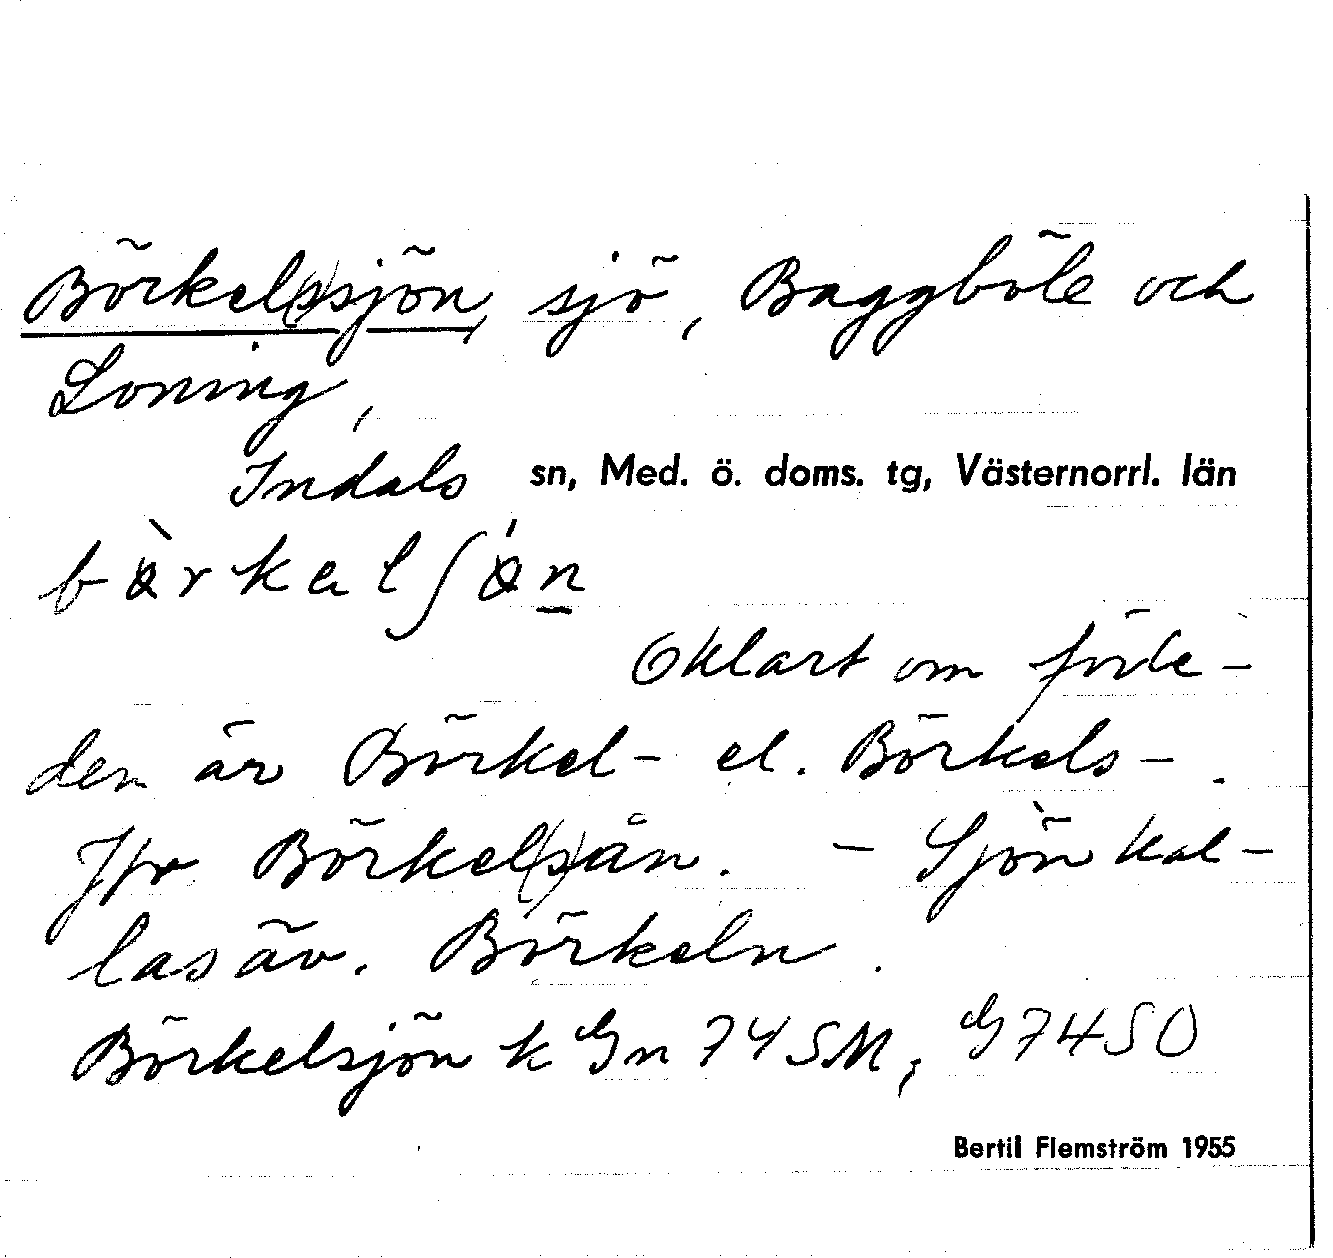 Börkel(s)sjön, sjö, Baggböle och
Loning,
Indals sn, Med. ö. doms. tg, Västernorrl. län
Oklart om förle-
den är Börkel- el. Börkels-.
Jfr Börkel(s)ån. – Sjön kal-
las äv. Börkeln.
Börkelsjön k Gn 74 SM, G74SO
Bertil Flemström 1955